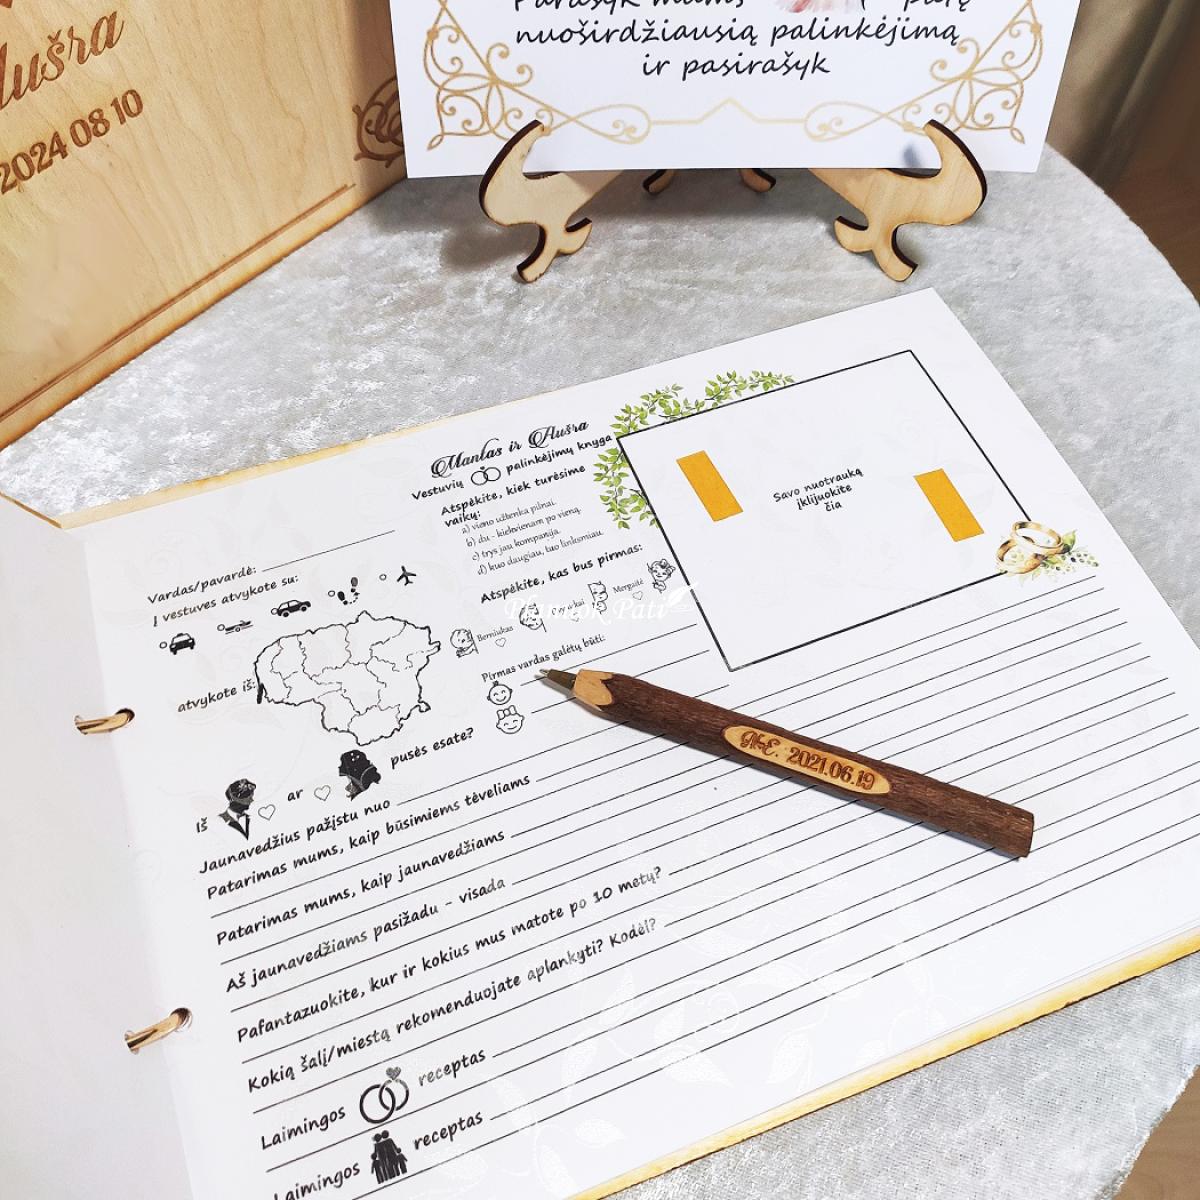 Aušra
2024 08 10
Parašyk mums
nuoširdžiausią palinkėjimą
ir pasirašyk
Mantas ir Aušra
Vestuvių palinkėjimų knyga
Atspėkite, kiek turėsime
vaikų:
a) vieno užtenka pilnai.
b) du - kiekvienam po vieną.
c) trys jau kompanija.
d) kuo daugiau, tuo linksmiau.
Atspėkite, kas bus pirmas:
Berniukas
Mergaitė
Pirmas vardas galėtų būti:
Savo nuotrauką
įklijuokite
čia
Vardas/pavardė:
Į vestuves atvykote su:
atvykote iš:
Iš ar pusės esate?
Jaunavedžius pažįstu nuo
Patarimas mums, kaip būsimiems tėveliams
Patarimas mums, kaip jaunavedžiams
Aš jaunavedžiams pasižadu - visada
Pafantazuokite, kur ir kokius mus matote po 10 metų?
Kokią šalį/miestą rekomenduojate aplankyti? Kodėl?
Laimingos receptas
Laimingos receptas
2021.06.19
Plannok Pati